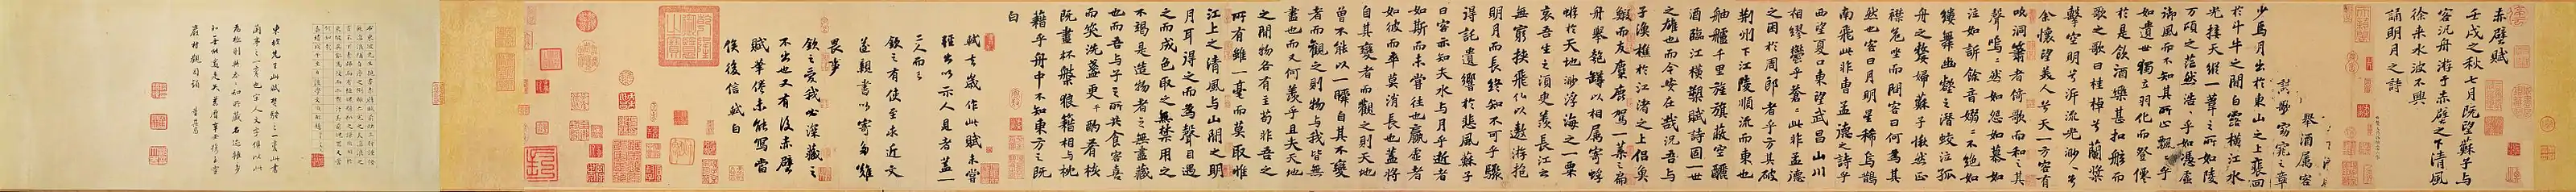 赤壁賦
壬戌之秋七月既望蘇子與
客汎舟游于赤壁之下清風
徐來水波不興
誦明月之詩
舉酒屬客
歌窈窕之章
少焉月出於東山之上裴回
於斗牛之間白露橫江水
光接天縱一葦之所如陵
萬頃之茫然浩浩乎如憑虛
御風而不知其所止飄飄乎
如遺世獨立羽化而登僊
於是飲酒樂甚扣舷而
歌之歌曰桂棹兮蘭槳
擊空明兮泝流光渺渺兮
余懷望美人兮天一方客有
吹洞簫者倚歌而和之其
聲嗚嗚然如怨如慕如
泣如訴餘音嫋嫋不絕如
縷舞幽壑之潛蛟泣孤
舟之嫠婦蘇子愀然正
襟危坐而問客曰何為其
然也客曰月明星稀烏鵲
南飛此非曹孟德之詩乎
西望夏口東望武昌山川
相繆鬱乎蒼蒼此非孟德
之困於周郎者乎方其破
荊州下江陵順流而東也
舳艫千里旌旗蔽空釃
酒臨江橫槊賦詩固一世
之雄也而今安在哉況吾與
子漁樵於江渚之上侶魚
蝦而友麋鹿駕一葉之扁
舟舉匏罇以相屬寄蜉
蝣於天地渺浮海之一粟
哀吾生之須臾羨長江之
無窮挾飛仙以遨游抱
明月而長終知不可乎驟
得託遺響於悲風蘇子
曰客亦知夫水與月乎逝者
如斯而未嘗往也贏虛者
如彼而卒莫消長也蓋將
自其變者而觀之則天地
曾不能以一瞬自其不變
者而觀之則物與我皆無
盡也而又何羨乎且夫天地
之間物各有主苟非吾之
所有雖一毫而莫取惟
江上之清風與山間之明
月耳得之而為聲目遇
之而成色取之無禁用之
不竭是造物者之無盡藏
也而吾與子之所共食客喜
而笑洗盞更酌肴核
既盡杯盤狼籍相與枕
藉乎舟中不知東方之既
白
軾去歲作此賦未嘗
輕出以示人見者蓋一
二人而已
欽之有使至求近文
遂親書以寄多難
畏事
欽之愛我必深藏之
不出也又有後赤壁
賦筆倦未能寫當
俟後信軾白
東坡先生此賦楚騷之一變此書
蘭亭之一變也宋人文字俱以此
為極則與
所藏名迹雖多
知無能逾是矣萬曆辛丑攜至靈
巖村居觀因題 董其昌